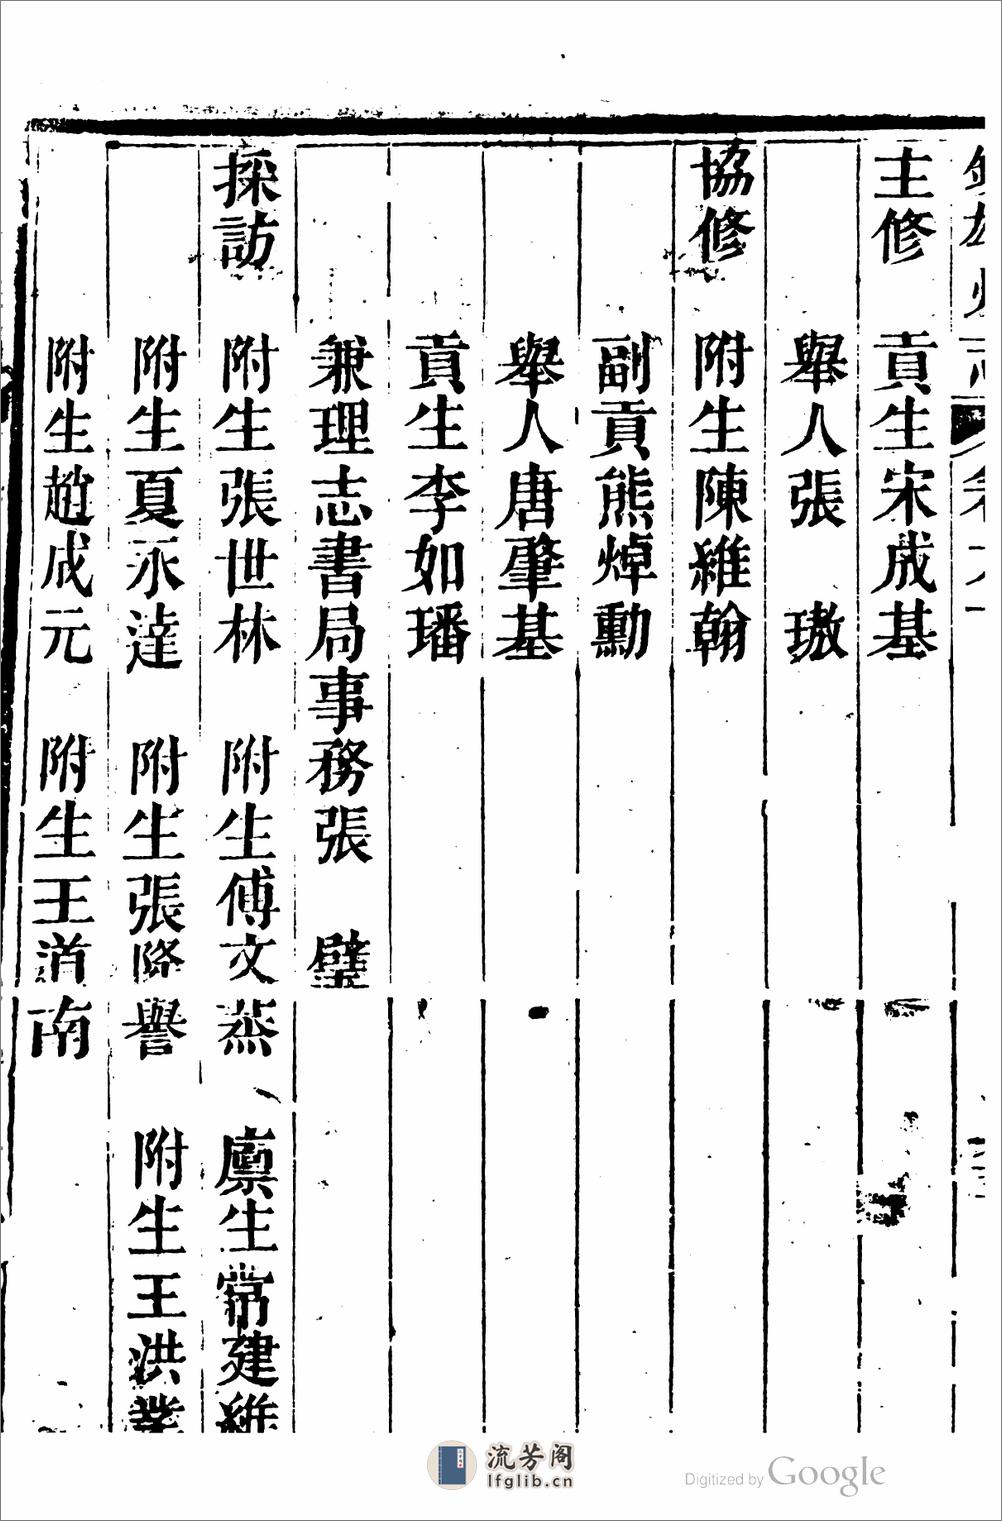 主修 貢生宋成基
舉人張 璈
協修 附生陳維翰
副貢熊焯勳
舉人唐肇基
貢生李如璠
兼理志書局事務張 璧
採訪 附生張世林 附生傅文燕 廪生常建維
附生夏永達 附生張隆譽 附生王洪業
附生趙成元 附生王道南
流芳阁
lfglib.cn
Digitized by Google